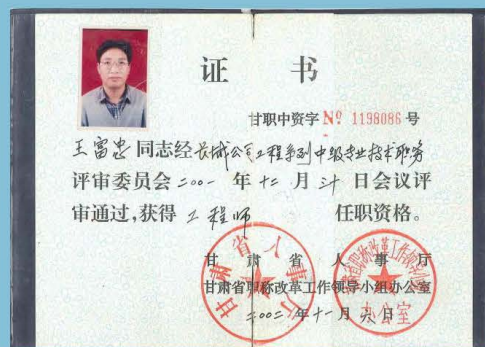 证 书
甘职中资字 № 1198086 号
王富忠 同志经 长城公司工程系列中级专业技术职务
评审委员会 二〇〇一 年 十二 月 三十 日会议评
审通过,获得 工程师 任职资格。
甘肃省人事厅
甘肃省职称改革工作领导小组办公室
二〇〇二 年 十一 月 日
甘肃省人事厅
办公室